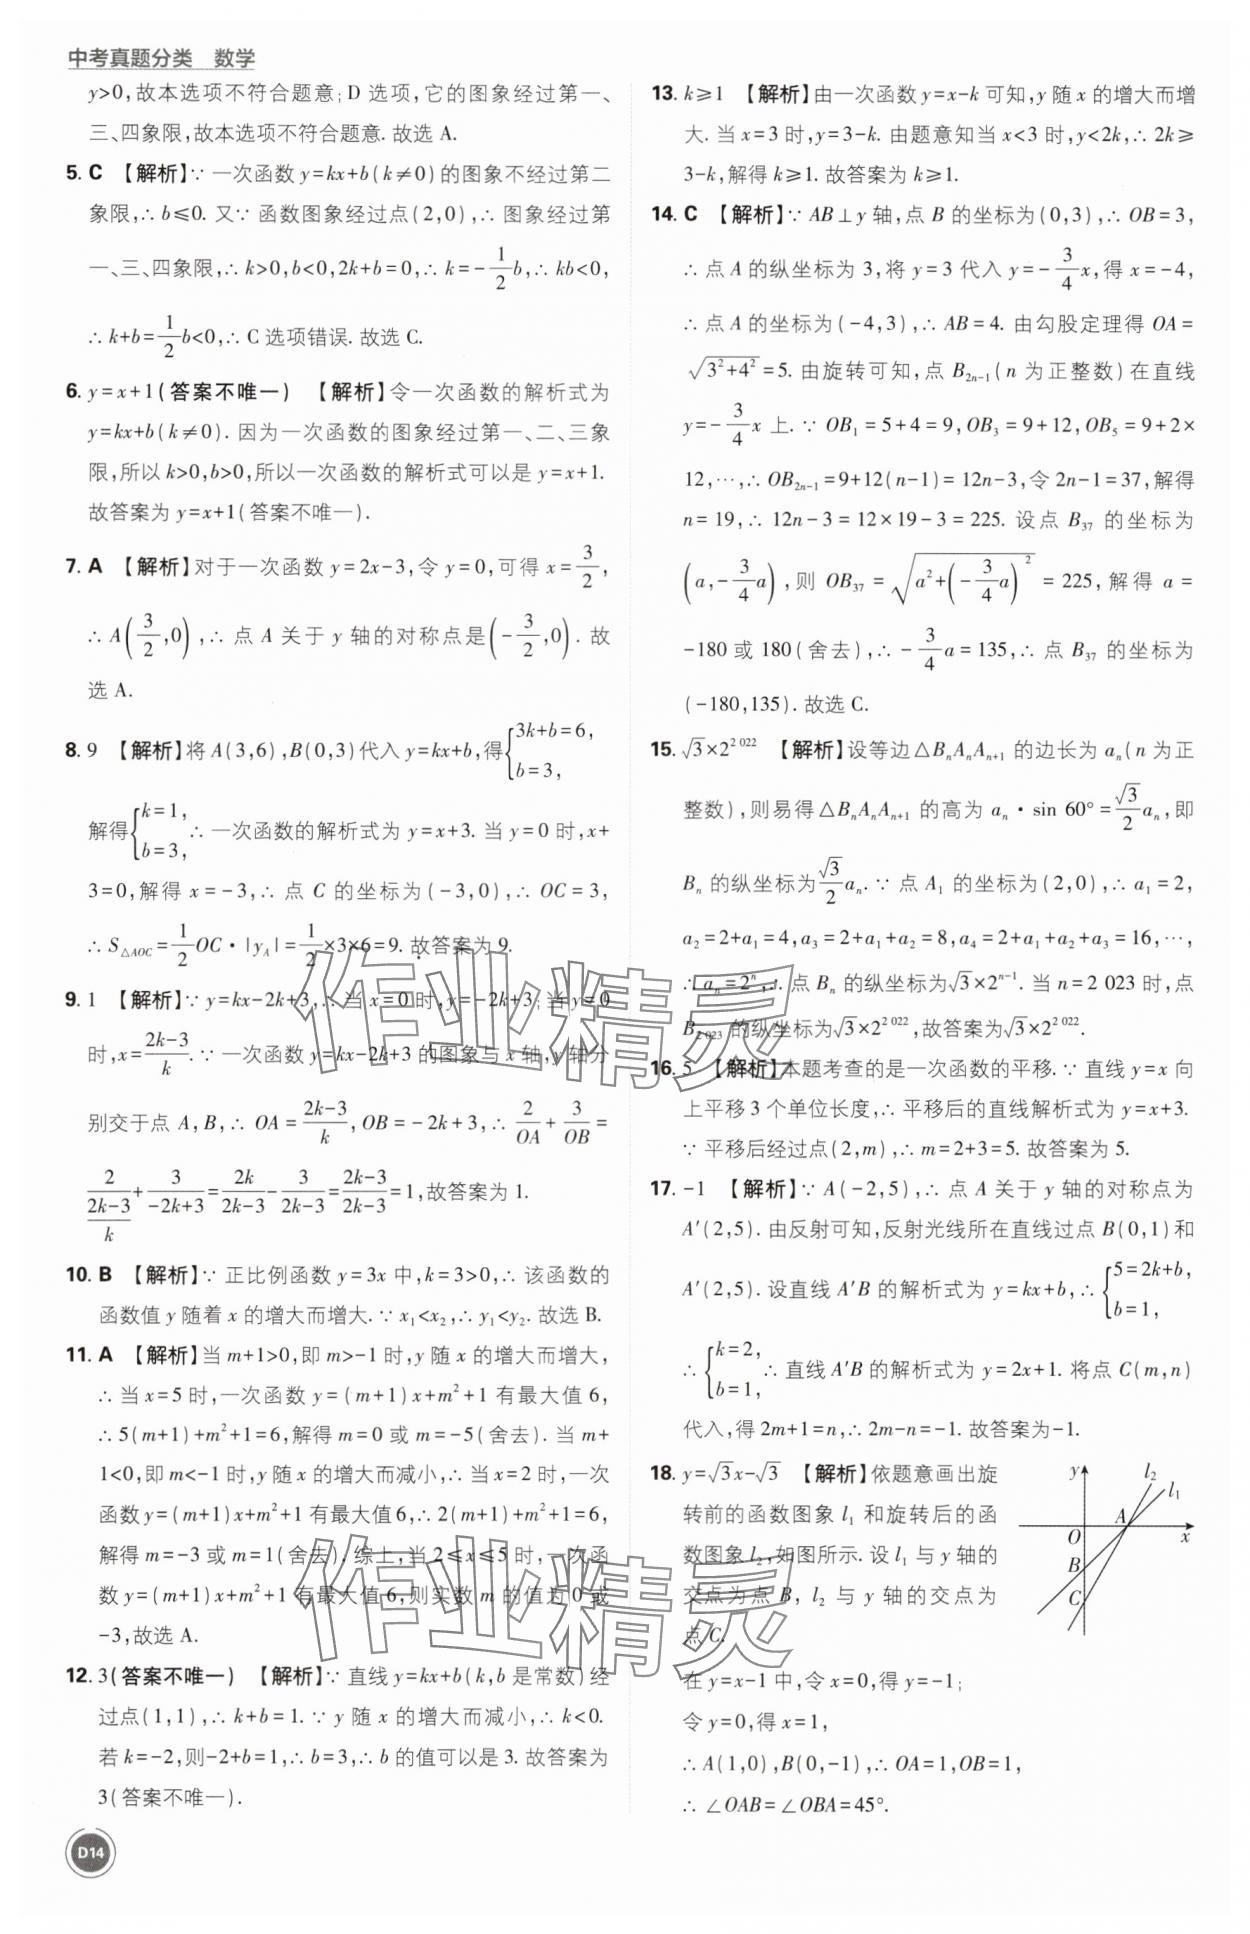 中考真题分类　数学
y>0,故本选项不符合题意;D 选项,它的图象经过第一、
三、四象限,故本选项不符合题意. 故选 A.
5. C 【解析】∵ 一次函数 y=kx+b(k≠0)的图象不经过第二
象限,∴ b≤0. 又∵ 函数图象经过点(2,0),∴ 图象经过第
一、三、四象限,∴ k>0,b<0,2k+b=0,∴ k=-1/2b,∴ kb<0,
∴ k+b=1/2b<0,∴ C 选项错误. 故选 C.
6. y=x+1(答案不唯一) 【解析】令一次函数的解析式为
y=kx+b(k≠0). 因为一次函数的图象经过第一、二、三象
限,所以 k>0,b>0,所以一次函数的解析式可以是 y=x+1.
故答案为 y=x+1(答案不唯一).
7. A 【解析】对于一次函数 y=2x-3,令 y=0,可得 x=3/2,
∴ A(3/2,0),∴ 点 A 关于 y 轴的对称点是(-3/2,0). 故
选 A.
8. 9 【解析】将 A(3,6),B(0,3)代入 y=kx+b,得{3k+b=6, b=3,
解得{k=1, b=3, ∴ 一次函数的解析式为 y=x+3. 当 y=0 时,x+
3=0,解得 x=-3,∴ 点 C 的坐标为(-3,0),∴ OC=3,
∴ S△AOC=1/2OC·|yA|=1/2×3×6=9. 故答案为 9.
9. 1 【解析】∵ y=kx-2k+3,∴ 当 x=0 时,y=-2k+3;当 y=0
时,x=(2k-3)/k. ∵ 一次函数 y=kx-2k+3 的图象与 x 轴,y 轴分
别交于点 A,B,∴ OA=(2k-3)/k,OB=-2k+3,∴ 2/OA+3/OB=
2/((2k-3)/k)+3/(-2k+3)=2k/(2k-3)-3/(2k-3)=(2k-3)/(2k-3)=1,故答案为 1.
10. B 【解析】∵ 正比例函数 y=3x 中,k=3>0,∴ 该函数的
函数值 y 随着 x 的增大而增大. ∵ x₁<x₂,∴ y₁<y₂. 故选 B.
11. A 【解析】当 m+1>0,即 m>-1 时,y 随 x 的增大而增大,
∴ 当 x=5 时,一次函数 y=(m+1)x+m²+1 有最大值 6,
∴ 5(m+1)+m²+1=6,解得 m=0 或 m=-5(舍去). 当 m+
1<0,即 m<-1 时,y 随 x 的增大而减小,∴ 当 x=2 时,一次
函数 y=(m+1)x+m²+1 有最大值 6,∴ 2(m+1)+m²+1=6,
解得 m=-3 或 m=1(舍去). 综上,当 2≤x≤5 时,一次函
数 y=(m+1)x+m²+1 有最大值 6,则实数 m 的值为 0 或
-3,故选 A.
12. 3(答案不唯一) 【解析】∵ 直线 y=kx+b(k,b 是常数)经
过点(1,1),∴ k+b=1. ∵ y 随 x 的增大而减小,∴ k<0.
若 k=-2,则-2+b=1,∴ b=3,∴ b 的值可以是 3. 故答案为
3(答案不唯一).
D14
13. k≥1 【解析】由一次函数 y=x-k 可知,y 随 x 的增大而增
大. 当 x=3 时,y=3-k. 由题意知当 x<3 时,y<2k,∴ 2k≥
3-k,解得 k≥1. 故答案为 k≥1.
14. C 【解析】∵ AB⊥y 轴,点 B 的坐标为(0,3),∴ OB=3,
∴ 点 A 的纵坐标为 3,将 y=3 代入 y=-3/4x,得 x=-4,
∴ 点 A 的坐标为(-4,3),∴ AB=4. 由勾股定理得 OA=
√(3²+4²)=5. 由旋转可知,点 B₂ₙ₋₁(n 为正整数)在直线
y=-3/4x 上. ∵ OB₁=5+4=9,OB₃=9+12,OB₅=9+2×
12,…,∴ OB₂ₙ₋₁=9+12(n-1)=12n-3,令 2n-1=37,解得
n=19,∴ 12n-3=12×19-3=225. 设点 B₃₇ 的坐标为
(a,-3/4a),则 OB₃₇=√(a²+(-3/4a)²)=225,解得 a=
-180 或 180(舍去),∴ -3/4a=135,∴ 点 B₃₇ 的坐标为
(-180,135). 故选 C.
15. √3×2^2 022 【解析】设等边△BₙAₙAₙ₊₁ 的边长为 aₙ(n 为正
整数),则易得△BₙAₙAₙ₊₁ 的高为 aₙ·sin 60°=√3/2aₙ,即
Bₙ 的纵坐标为√3/2aₙ. ∵ 点 A₁ 的坐标为(2,0),∴ a₁=2,
a₂=2+a₁=4,a₃=2+a₁+a₂=8,a₄=2+a₁+a₂+a₃=16,…,
∴ aₙ=2ⁿ,∴ 点 Bₙ 的纵坐标为√3×2ⁿ⁻¹. 当 n=2 023 时,点
B₂ ₀₂₃ 的纵坐标为√3×2^2 022,故答案为√3×2^2 022.
16. 5 【解析】本题考查的是一次函数的平移. ∵ 直线 y=x 向
上平移 3 个单位长度,∴ 平移后的直线解析式为 y=x+3.
∵ 平移后经过点(2,m),∴ m=2+3=5. 故答案为 5.
17. -1 【解析】∵ A(-2,5),∴ 点 A 关于 y 轴的对称点为
A′(2,5). 由反射可知,反射光线所在直线过点 B(0,1)和
A′(2,5). 设直线 A′B 的解析式为 y=kx+b,∴ {5=2k+b, b=1,
∴ {k=2, b=1, ∴ 直线 A′B 的解析式为 y=2x+1. 将点 C(m,n)
代入,得 2m+1=n,∴ 2m-n=-1. 故答案为-1.
18. y=√3x-√3 【解析】依题意画出旋
转前的函数图象 l₁ 和旋转后的函
数图象 l₂,如图所示. 设 l₁ 与 y 轴的
交点为点 B, l₂ 与 y 轴的交点为
点 C.
y l₂ l₁
A
O x
B
C
在 y=x-1 中,令 x=0,得 y=-1;
令 y=0,得 x=1,
∴ A(1,0),B(0,-1),∴ OA=1,OB=1,
∴ ∠OAB=∠OBA=45°.
作业精灵
作业精灵